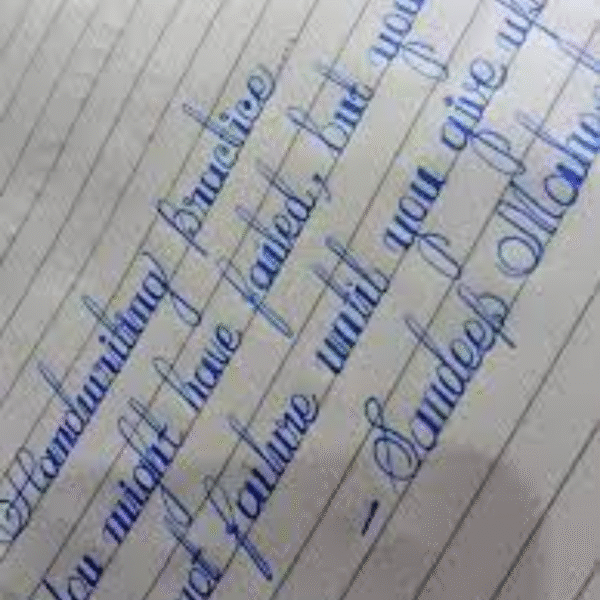 Handwriting practice...
You might have failed, but you
not failure until you give up
- Sandeep Mahe